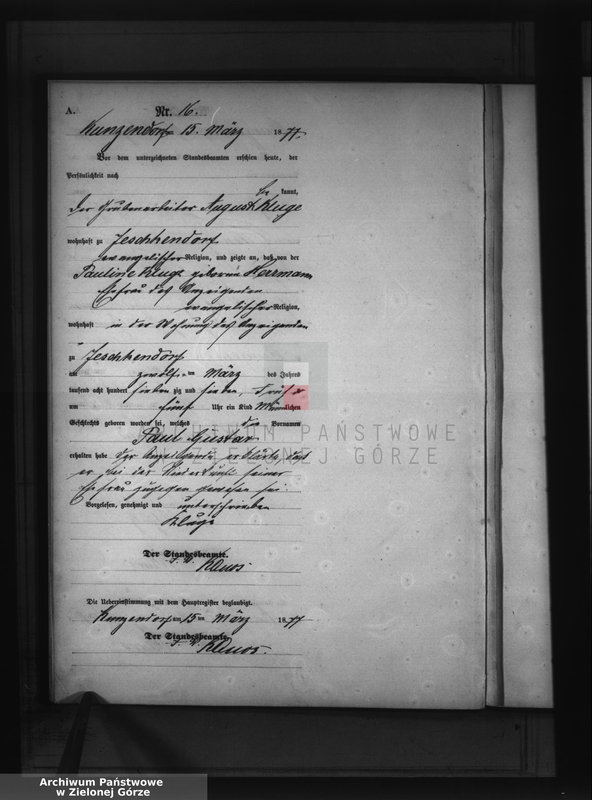 A.
Nr. 16.
Kunzendorf 15. März 1877.
Vor dem unterzeichneten Standesbeamten erschien heute, der
Persönlichkeit nach
be kannt,
der Grubenarbeiter August Kluge
wohnhaft zu Jeschkendorf
evangelischer Religion, und zeigte an, daß von der
Pauline Kluge geborene Herrmann
Ehefrau des Anzeigenden
evangelischer Religion,
wohnhaft in der Wohnung des Anzeigenden
zu Jeschkendorf
am zwölften März des Jahres
tausend acht hundert sieben zig und sieben, früh
um fünf Uhr ein Kind männlichen
Geschlechts geboren worden sei, welches die Vornamen
Paul Gustav
erhalten habe Der Anzeigende erklärte, daß
er bei der Niederkunft seiner
Ehefrau zugegen gewesen sei.
Vorgelesen, genehmigt und unterschrieben
Kluge
Der Standesbeamte.
Die Uebereinstimmung mit dem Hauptregister beglaubigt.
Kunzendorf am 15 ten März 1877
Der Standesbeamte.
ARCHIWUM PAŃSTWOWE
W ZIELONEJ GÓRZE
Archiwum Państwowe
w Zielonej Górze